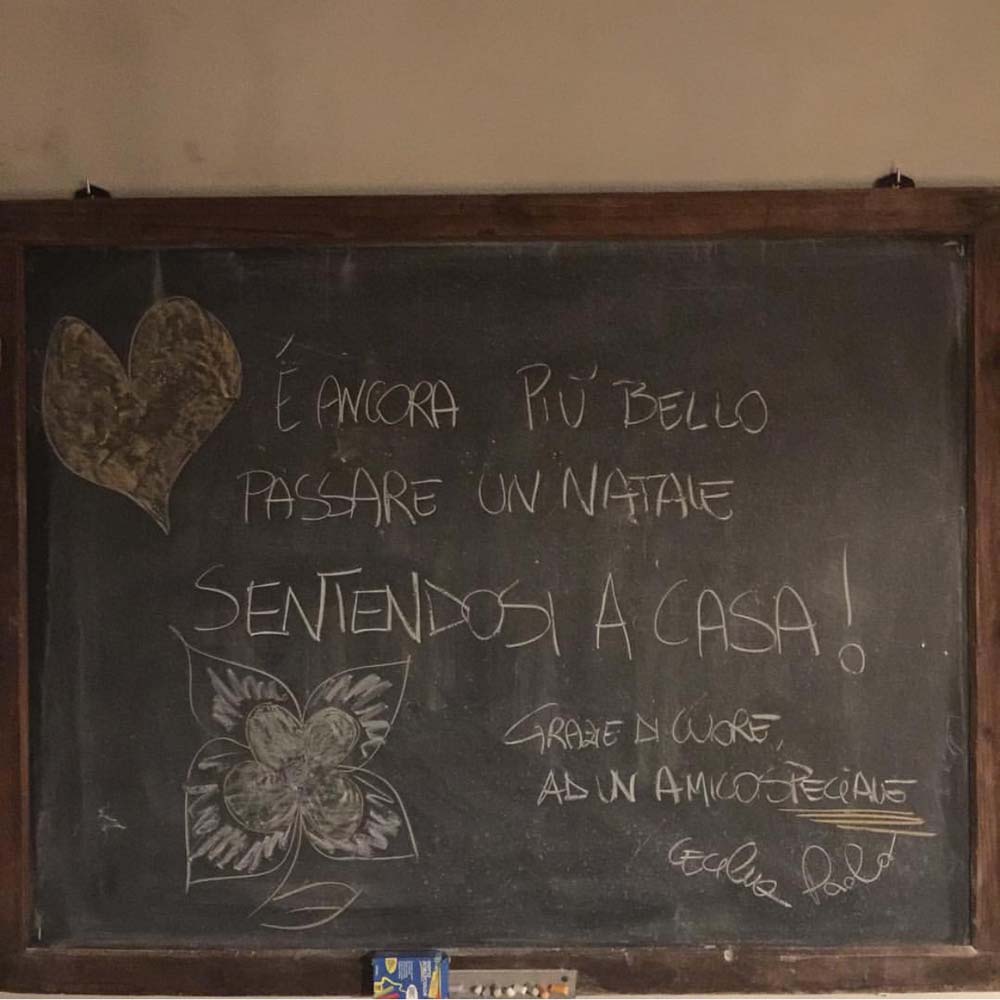 È ANCORA PIÙ BELLO
PASSARE UN NATALE
SENTENDOSI A CASA!
GRAZIE DI CUORE,
AD UN AMICO SPECIALE
Paolo